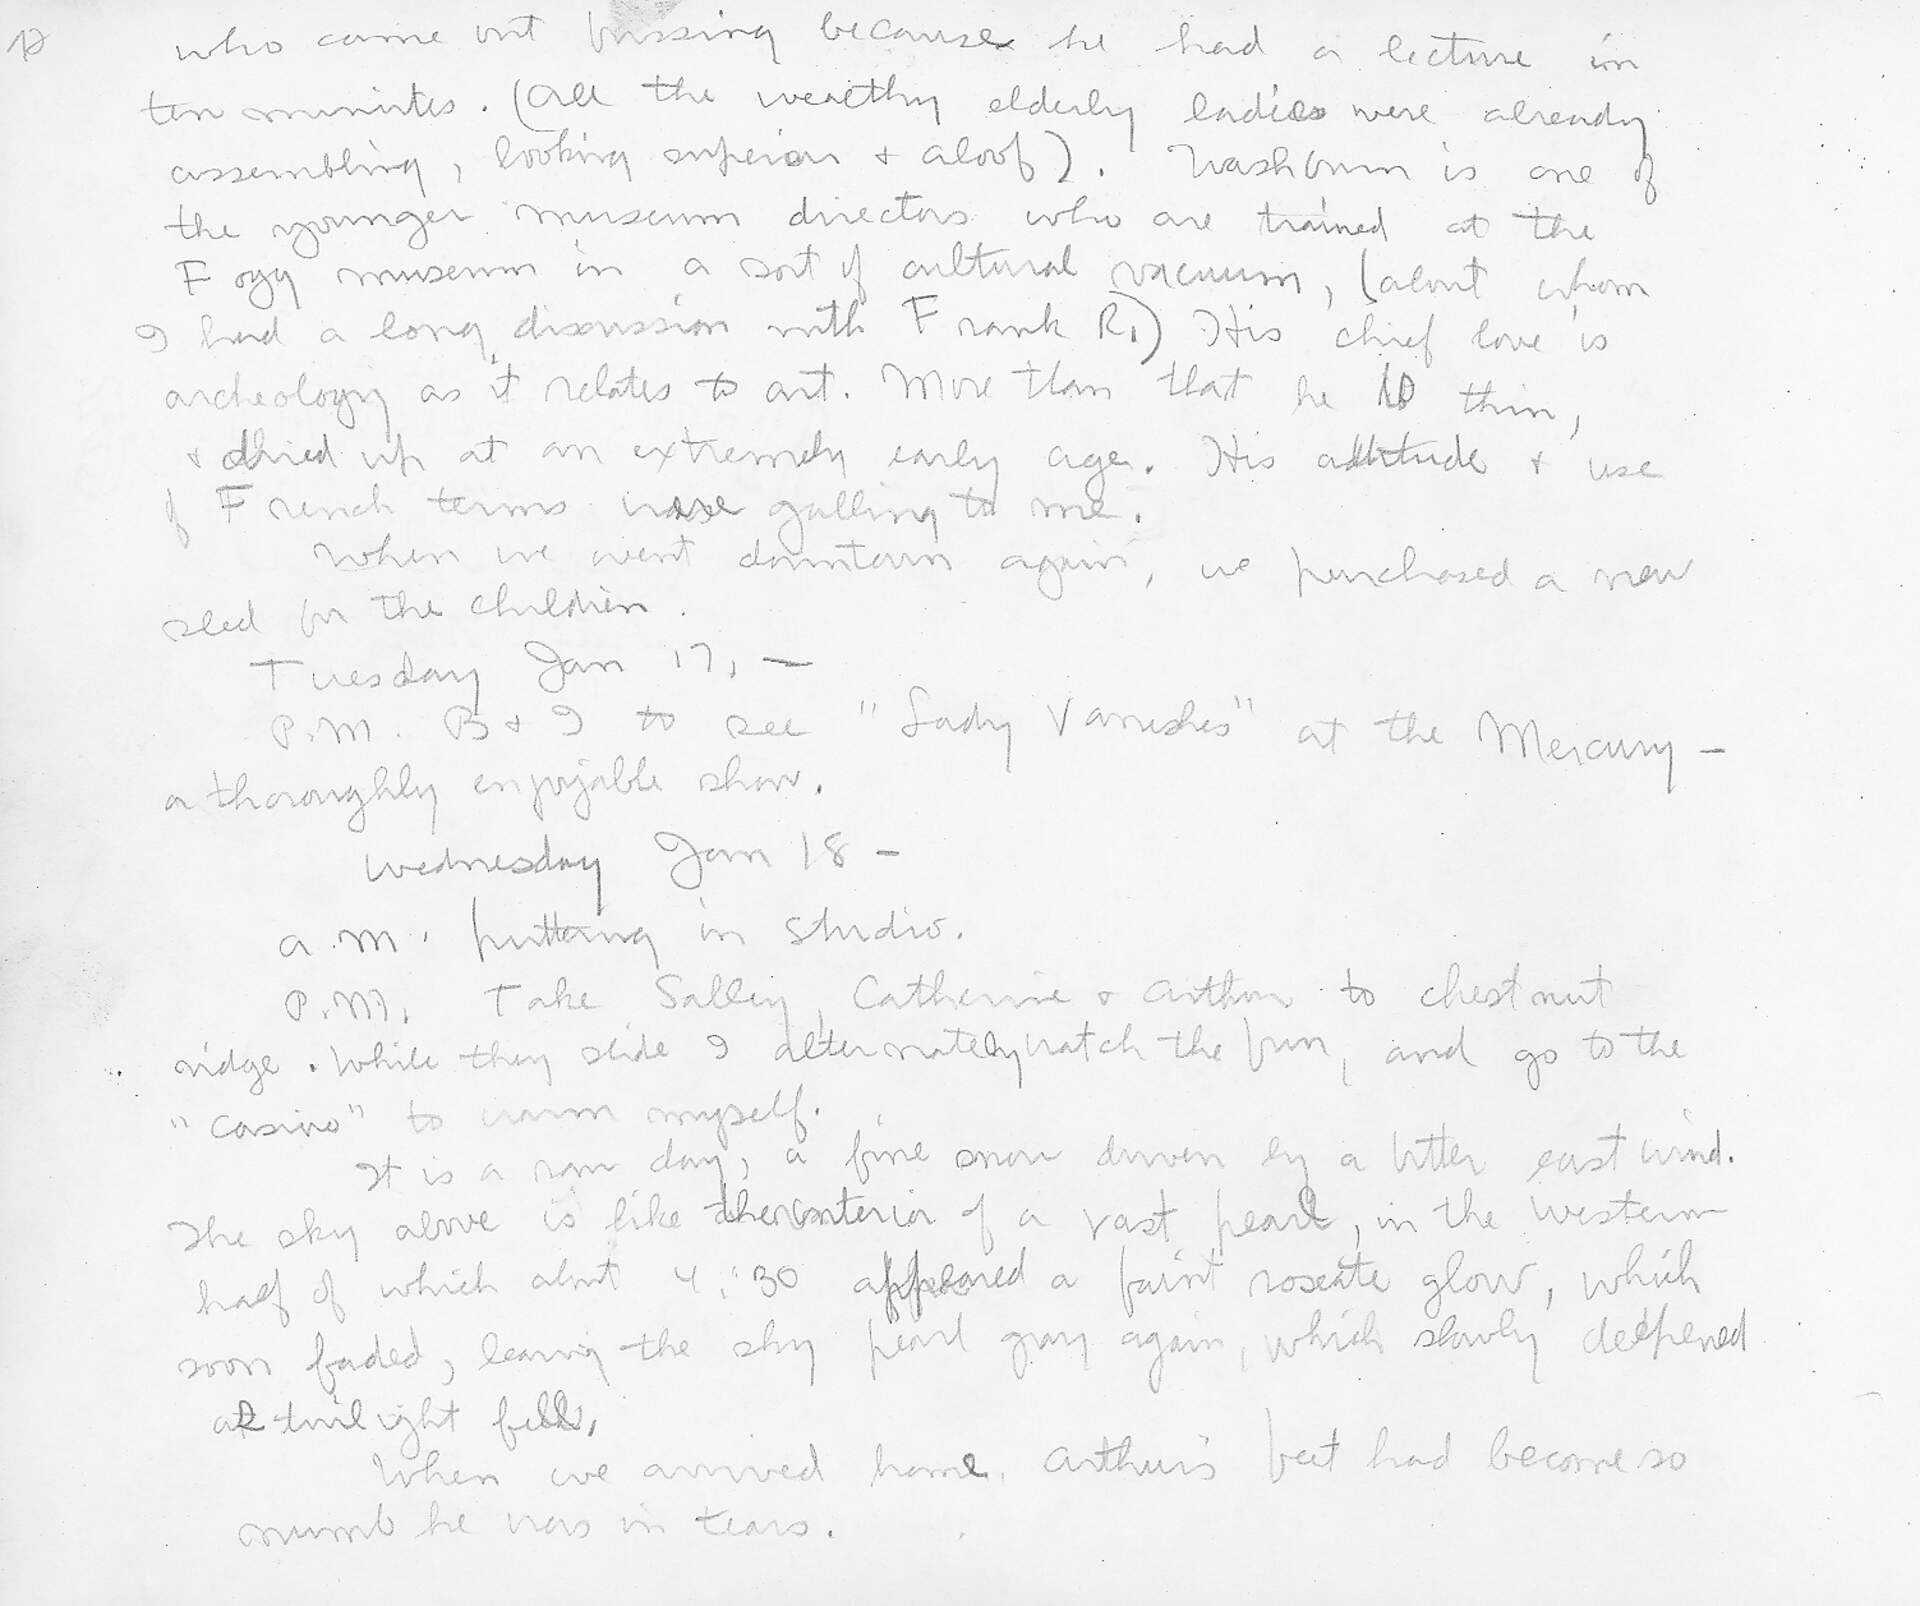 who came out fussing because he had a lecture in
ten minutes. (All the wealthy elderly ladies were already
assembling, looking superior + aloof). Washburn is one of
the younger museum directors who are trained at the
Fogg museum in a sort of cultural vacuum, (about whom
I had a long discussion with Frank R.) His chief love is
archeology as it relates to art. More than that he is thin,
+ dried up at an extremely early age. His attitude + use
of French terms were galling to me.
When we went downtown again, we purchased a new
sled for the children.
Tuesday Jan 17, —
P.M. B + I to see "Lady Vanishes" at the Mercury —
a thoroughly enjoyable show.
Wednesday Jan 18 —
a.m. puttering in studio.
P.M. Take Salley, Catherine + Arthur to chestnut
ridge. While they slide I alternately watch the fun, and go to the
"Casino" to warm myself.
It is a raw day, a fine snow driven by a bitter east wind.
The sky above is like the interior of a vast pearl, in the western
half of which about 4:30 appeared a faint roseate glow, which
soon faded, leaving the sky pearl gray again, which slowly deepened
as twilight fell.
When we arrived home, Arthur's feet had become so
numb he was in tears.